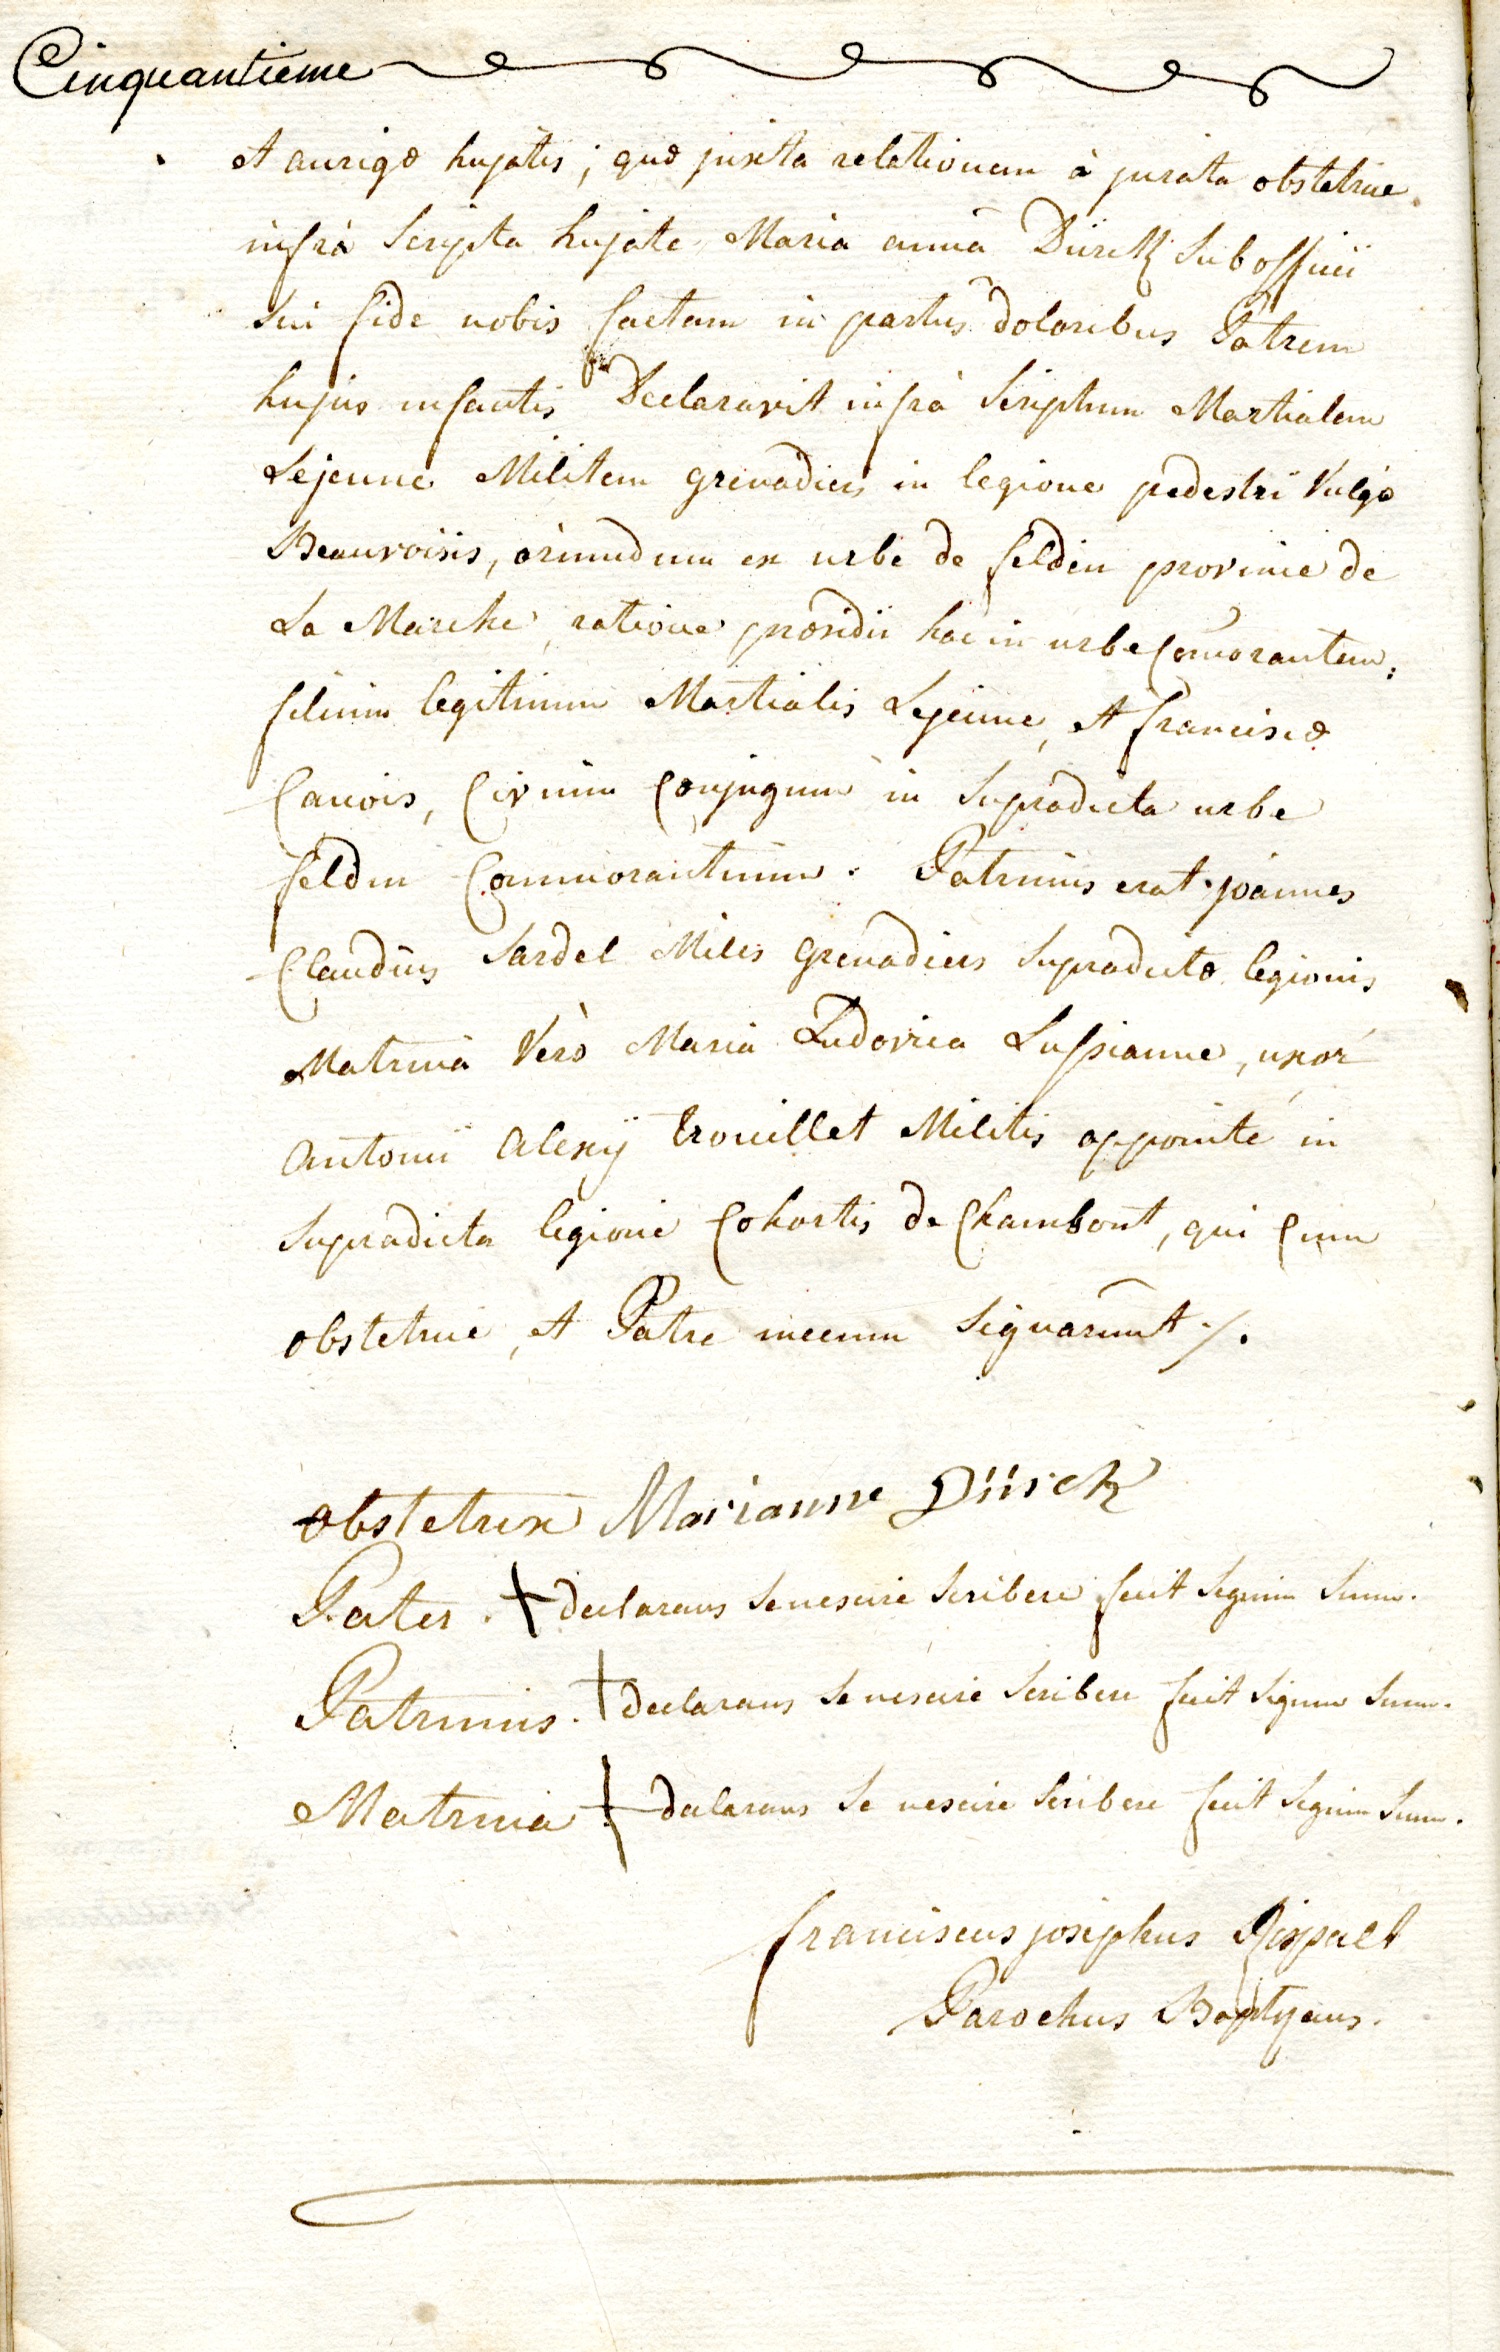 Cinquantieme
et aurigæ hujatis ; quæ juxta relationem à jurata obstetrice
infrà scripta hujate Maria anna Dürck sub officii
sui fide nobis factam in partus doloribus Patrem
hujus infantis Declaravit infrà scriptum Martialem
Lejeune Militem grenadiers in legione pedestri Vulgò
Beauvoisis, oriundum ex urbe de feldin provinciæ de
La Marche, ratione præsidii hac in urbe Comorantem;
filium legitimum Martialis Lejeune, et franciscæ
Civium Conjugum in supradicta urbe
feldin Commorantium. Patrinus erat joannes
Claudius Sardel Miles grenadiers supradictæ legionis
Matrina Verò Maria Ludovica Lussianne, uxor
antonii alexij trouillet Militis appointé in
supradicta legione Cohortis de Chambont, qui Cum
obstetrice, et Patre mecum signarunt ./.
obstetrix Marianne Dürck
Pater + declarans se nescire scribere fecit signum suum.
Patrinus + declarans se nescire scribere fecit signum suum.
Matrina + declarans se nescire scribere fecit signum suum.
franciscus josephus
Parochus Baptyans.